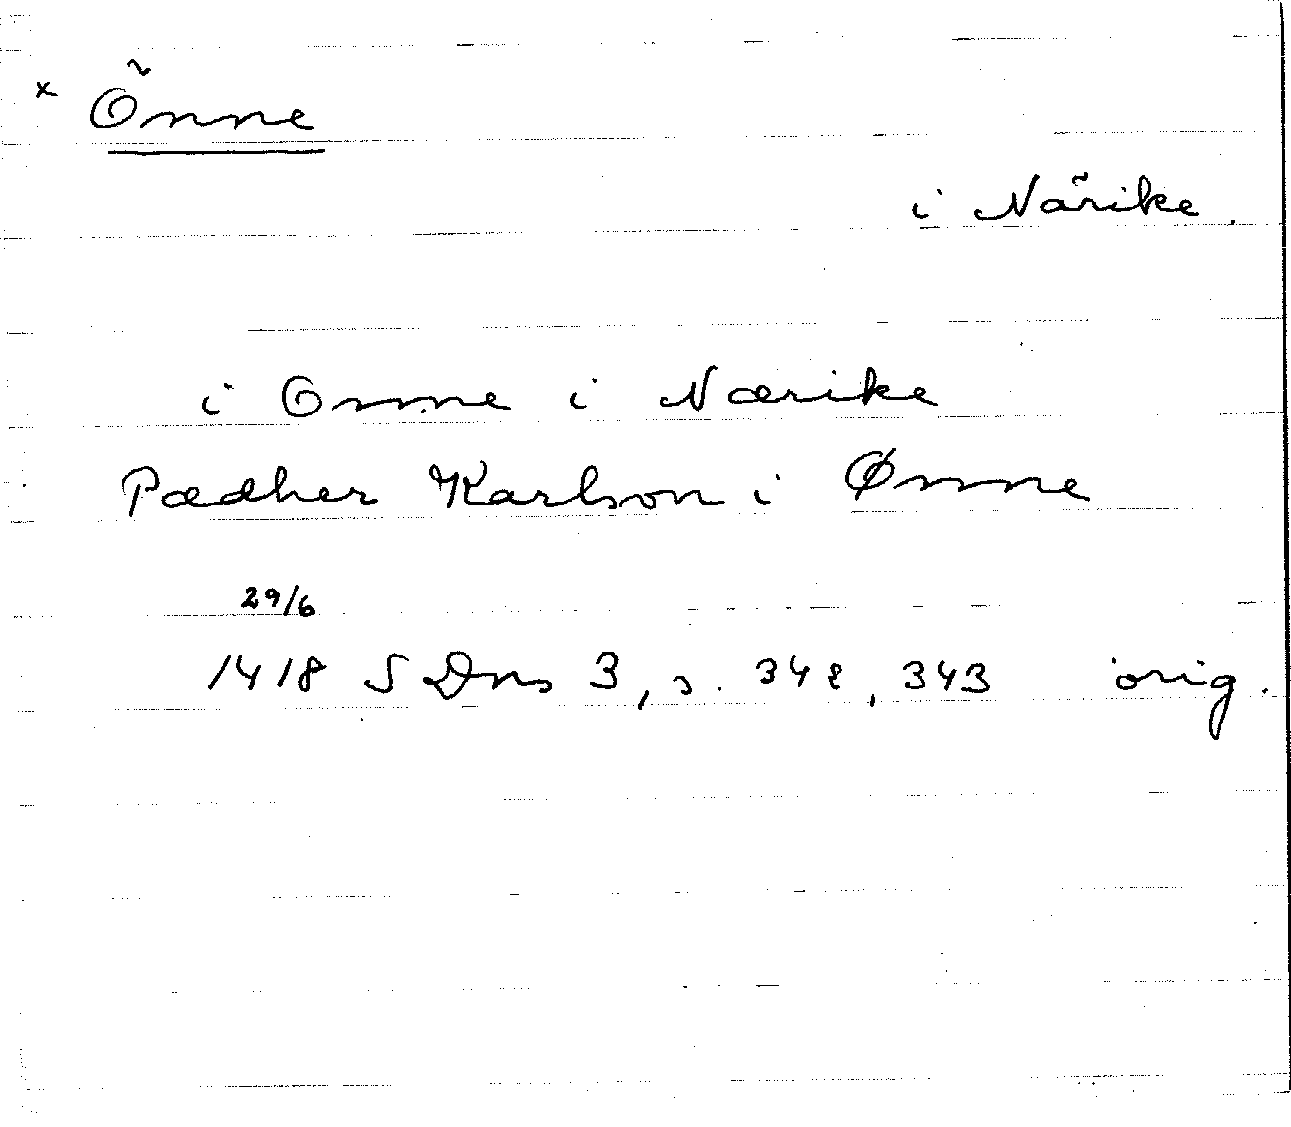 x Önne
i Närike.
i Onne i Nærike
Pædher Karlson i Ønne
29/6
1418 SDns 3, s. 342, 343 orig.